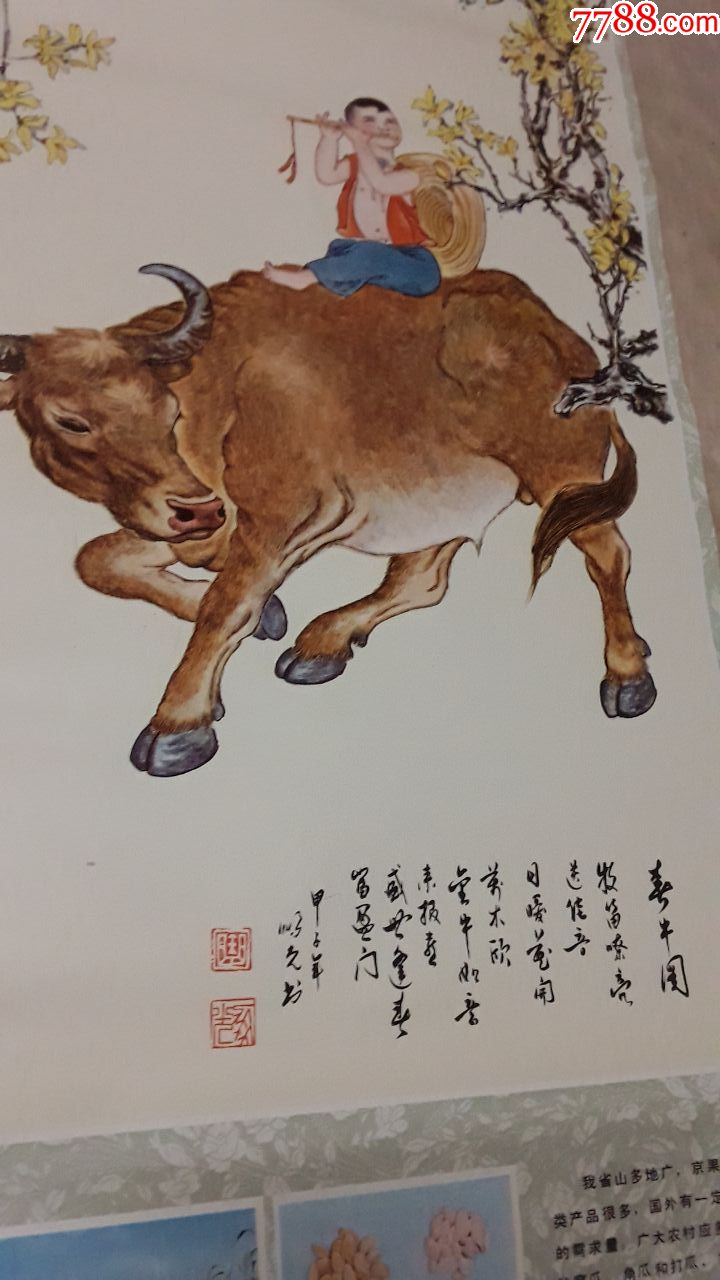 7788.com
春牛图
牧笛嘹亮
送佳音
日暖花开
万木欣
金牛如意
来报喜
盛世逢春
富盈门
甲子年
我省山多地广，京果
类产品很多，国外有一定
的需求量。广大农村应
瓜和打瓜，